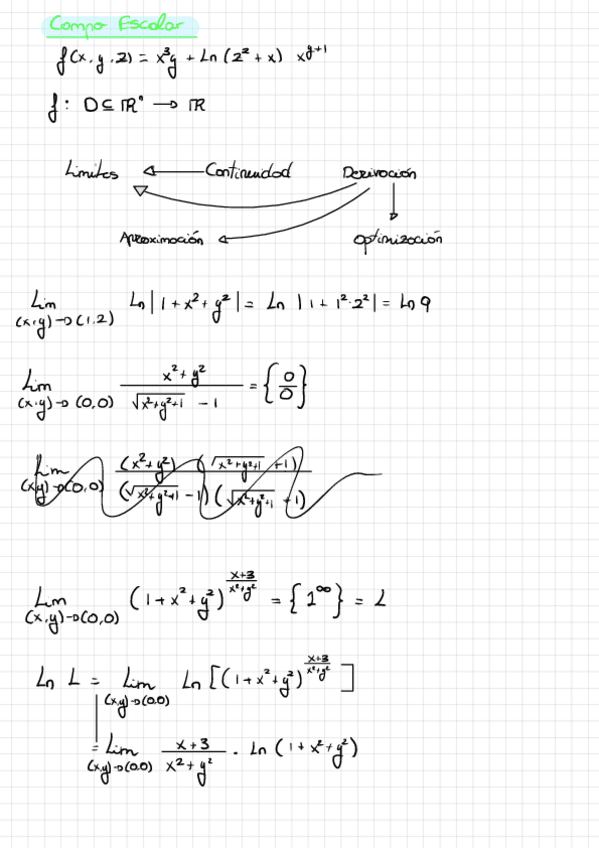 Campo Escalar
f(x, y, z) = x³y + Ln(z² + x) x^(y+1)
f : D ⊆ ℝⁿ → ℝ
Limites ← Continuidad Derivación
Aproximación Optimización
Lim (x,y)→(1,2) Ln|1 + x² + y²| = Ln |1 + 1²·2²| = Ln 9
Lim (x,y)→(0,0) (x² + y²)/(√(x²+y²+1) - 1) = {0/0}
Lim (x,y)→(0,0) (x²+y²) (√(x²+y²+1) + 1) / (√(x²+y²+1) - 1)(√(x²+y²+1) + 1)
Lim (x,y)→(0,0) (1 + x² + y²)^((x+3)/(x²+y²)) = {1^∞} = L
Ln L = Lim (x,y)→(0,0) Ln [(1 + x² + y²)^((x+3)/(x²+y²))]
= Lim (x,y)→(0,0) (x + 3)/(x² + y²) · Ln (1 + x² + y²)